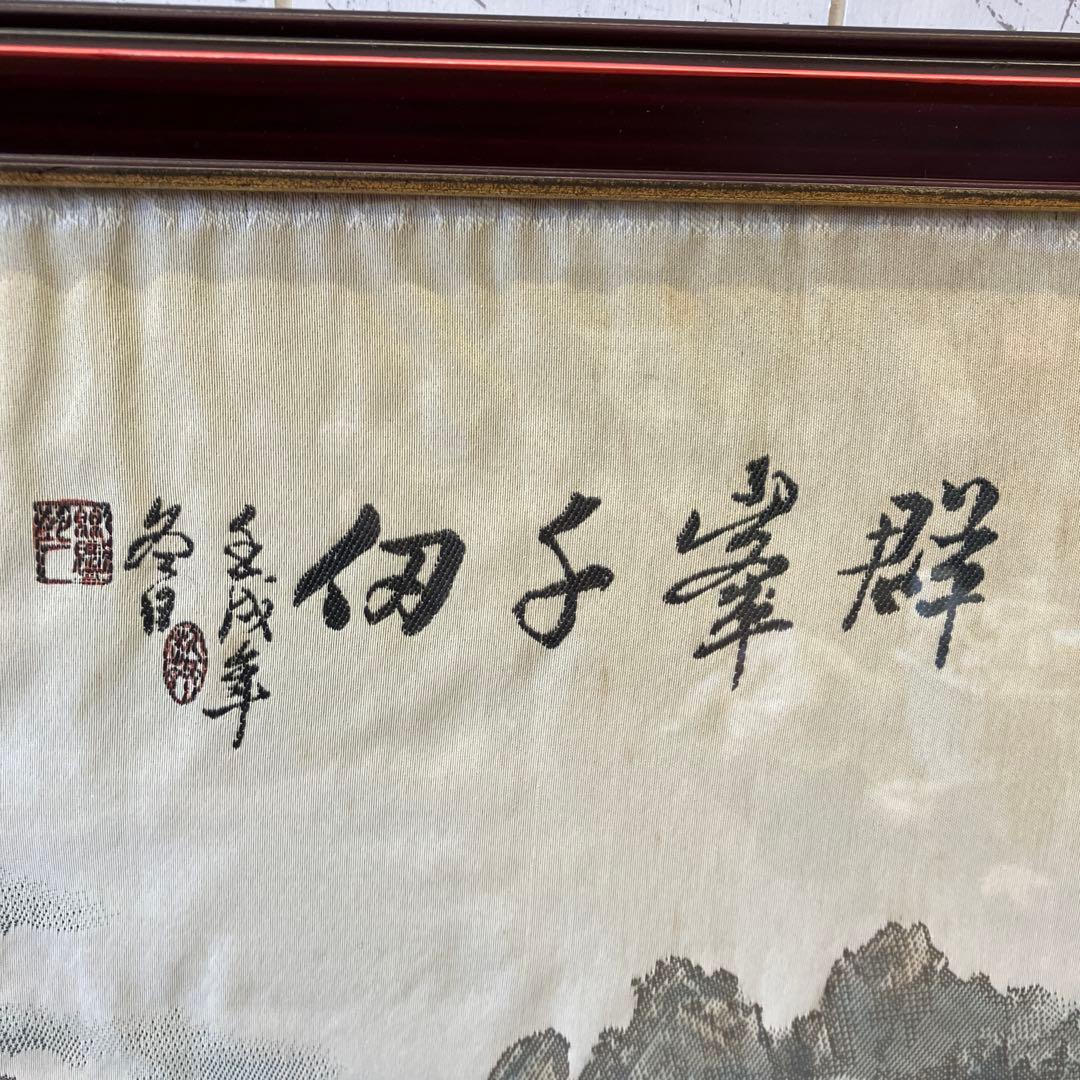 群峯千仞
壬戌年
冬日